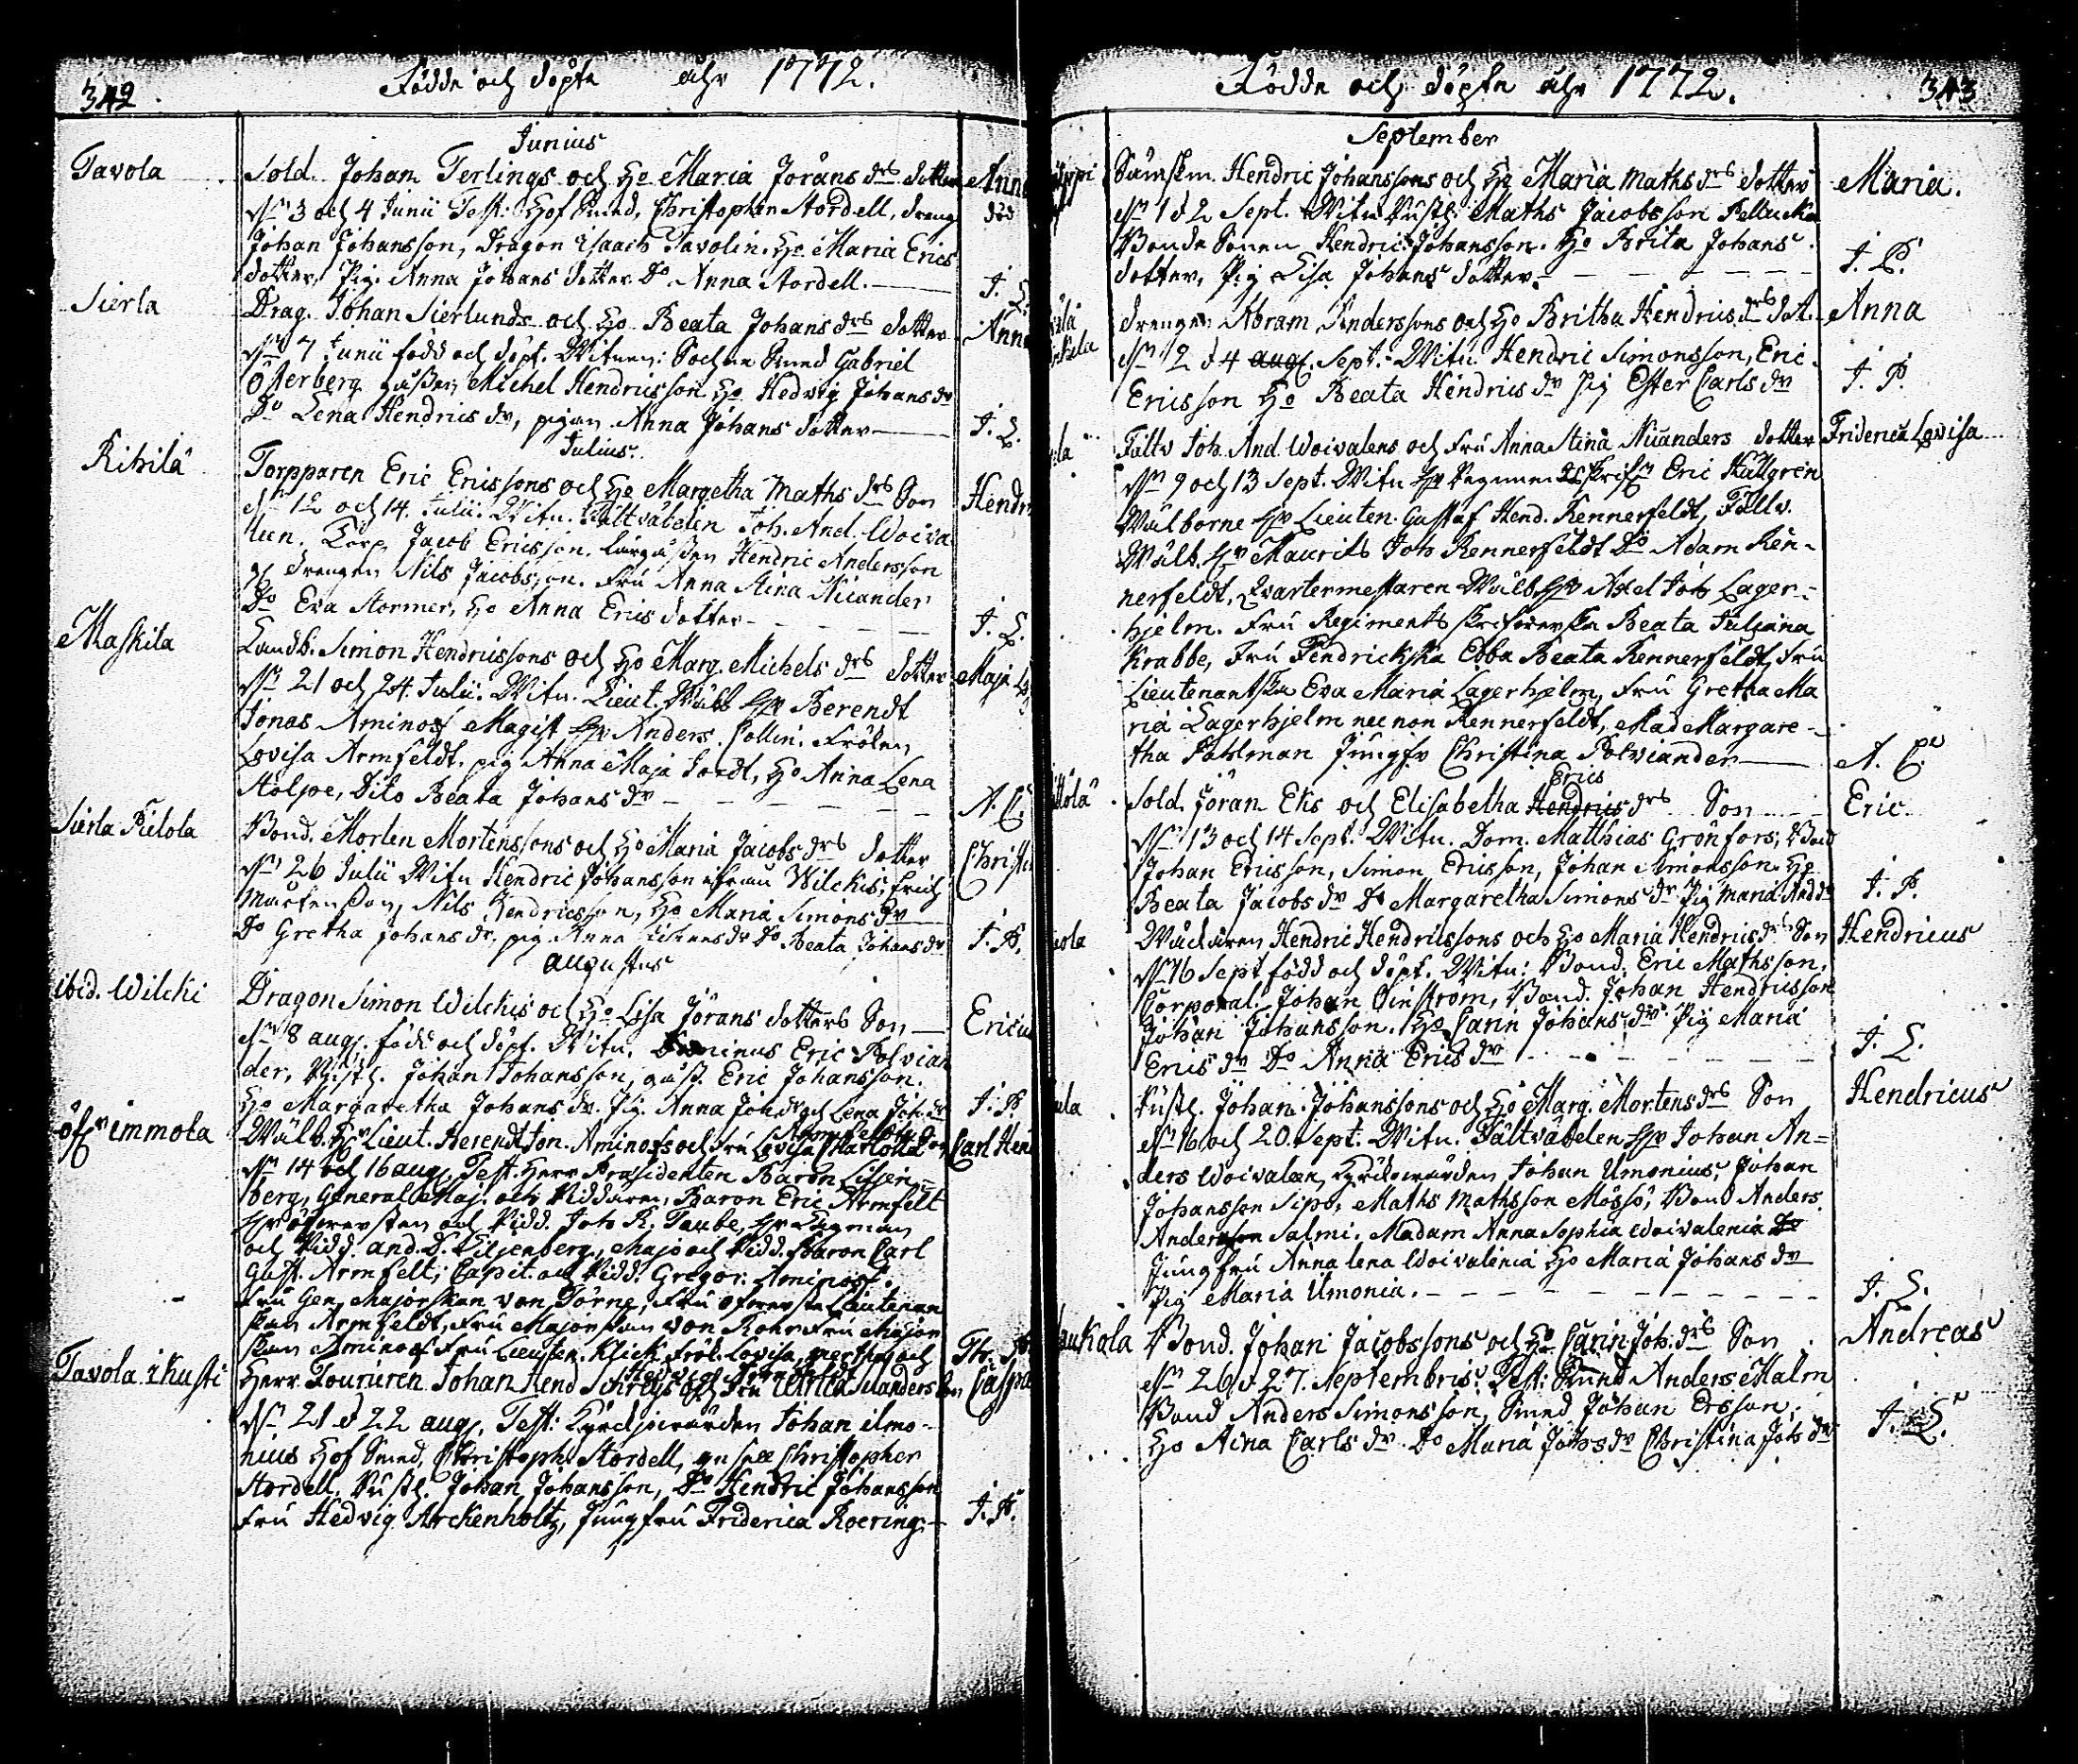 342
Födde och döpte åhr 1772.
Junius
Tavola
Sold. Johan Terlings och Ho Maria Jörans drs dotter
Anna
dn 3 och 4 Junii Test: Hof Smed, Christopher Stordell, dreng
död
Johan Johansson, Dragon Isaach Tavolin. Ho Maria Erics
dotter, Pig. Anna Johans dotter Do Anna Stordell.
J. L.
Sierla
Drag. Johan Sierlunds och Ho Beata Johans drs dotter
Anna
dn 7 Junii född och döpt. Witnen: Sochne Smed Gabriel
Österberg Michel Hendricsson Ho Hedvig Johans dr
Do Lena Hendrics dr, pigan Anna Johans dotter
J. L.
Julius
Rihilä
Torpparen Eric Ericssons och Ho Margetha Maths drs Son
Hendr
dn 12 och 14 Julii. Witn. Fältväbelen Joh. And. Woiva
len. Torp. Jacob Ericsson. Hendric Andersson
drengen Nils Jacobsson. Fru Anna Stina Nicander
Do Eva Stormer, Ho Anna Erics dotter
J. L.
Maskila
Landb. Simon Hendricssons och Ho Marg. Michels drs dotter
Maja
dn 21 och 24 Julii. Witn. Lieut. Wälb Hr Berendt
Jonas Aminoff Magist Hr Anders Collin. Fröken
Lovisa Armfeldt, pig Anna Maja Ho Anna Lena
Stolpe, Dito Beata Johans dr
A. C.
Sierla Pielola
Bond. Morten Mortenssons och Ho Maria Jacobs drs dotter
Christi
dn 26 Julii Witn Hendric Johansson ifrån Wilckis, Erich
Mårtensson, Nils Hendricsson, Ho Maria Simons dr
Do Gretha Johans dr, pig Anna dr Do Beata Johans dr
J. P.
Augustus
ibid. Wilcki
Dragon Simon Wilckis och Ho Lisa Jörans dotters Son
Ericus
dn 8 aug. född och döpt. Witn. Dominus Eric Polvian
der, Johan Johansson, Eric Johansson.
Ho Margaretha Johans dr. Pig. Anna Joh. dr och Lena Joh. dr
J. P.
öfr immola
Armfelts
Wälb. Hr Lieut. Berendt Jon. Aminoffs och Fru Lovisa Charlotta Son
Carl Hen
dn 14 och 16 aug. Test. Herr Presidenten Baron Liljen
berg, General Maj. och Riddaren, Baron Eric Armfelt
Hr öfversten och Ridd. Joh R. Taube, Hr Lagman
och Ridd. And. D. Liljenberg, Major och Ridd. Baron Carl
Gust. Armfelt, Capit. och Ridd. Gregor. Aminoff.
Fru Gen. Majorskan von Törne, Fru öfverste Lieutenan
skan Armfeldt, Fru Majorskan von Rohr Fru Major
skan Aminoff Fru Lieuten. Klick Fröl. Lovisa, och
Tavola ikusti
Herr Fouriren Johan Hend Schreijs och Fru Ulrica Svanders Son
Caspa
dn 21 d 22 aug. Test: Kyrckiowärden Johan ilmo
nius Hof Smed, Christoph. Stordell, Christopher
Stordell. Johan Johansson, Do Hendric Johansson
Fru Hedvig Arckenholtz, Jungfru Friderica Roering.
J. P.
Födde och döpte åhr 1772.
343
September
ppi
Hendric Johanssons och Ho Maria Maths drs dotter
Maria.
dn 1 d 2 Sept. Witn Maths Jacobsson
Bonde Sonen Hendric Johansson. Ho Brita Johans
dotter, Pig Lisa Johans dotter.
J. P.
Drengen Abram Anderssons och Ho Britha Hendrics drs dot.
Anna
dn 2 d 4 aug. Sept. Witn. Hendric Simonsson, Eric
Ericsson Ho Beata Hendrics dr Pig Ester Carls dr
J. P.
Fältv Joh. And. Woivalens och Fru Anna Stina Nicanders dotter
Friderica Lovisa
dn 9 och 13 Sept. Witn Hr Eric Hällgren
Wälborne Hr Lieuten. Gustaf Hend. Rennerfeldt, Fältv.
Wälb. Hr Maurits Joh Rennerfeldt Do Adam Ren-
nerfeldt, Qvartermestaren Wälb. Hr Axel Joh Lager-
hjelm. Fru Regiments skrifverska Beata Juliana
Krabbe, Fru Fendrickska Ebba Beata Rennerfeldt, Fru
Lieutenantska Eva Maria Lagerhjelm, Fru Gretha Ma
ria Lagerhjelm nec non Rennerfeldt, Mad Margare-
tha Pahlman Jungfr Christina Polviander
A. C.
Erics
Sold. Jöran Eks och Elisabetha Hendrics drs Son
Eric
dn 13 och 14 Sept. Witn. Dom. Matthias Grönfors, Bond
Johan Ericsson, Simon Ericsson, Johan Simonsson. Ho
Beata Jacobs dr Do Margaretha Simons dr Pig Maria And dr
J. P.
Hendric Hendricssons och Ho Maria Hendrics drs Son
Hendricus
dn 16 Sept född och döpt. Witn: Bond. Eric Mathsson,
Corporal. Johan Bond. Johan Hendricsson
Johan Johansson. Ho Carin Johans dr. Pig Maria
Erics dr Do Anna Erics dr
J. L.
Johan Johanssons och Ho Marg. Mortens drs Son
Hendricus
dn 16 och 20 Sept. Witn. Fältväbelen Hr Johan An=
ders Woivalen, Kyrckowärden Johan Umonius, Johan
Johansson Sipo, Maths Mathsson Mössö, Bond Anders
Andersson Salmi. Madam Anna Sophia Woivalenia
Jungfru Anna Lena Woivalenia Ho Maria Johans dr
Pig Maria Umonia.
J. L.
aukola
Bond. Johan Jacobssons och Ho Carin Joh. drs Son
Andreas
dn 26 d 27 Septembris. Test: Smed Anders Malm
Bond Anders Simonsson, Smed Johan Ersson,
Ho Aina Carls dr Do Maria Johs dr Christina Joh dr
J. L.